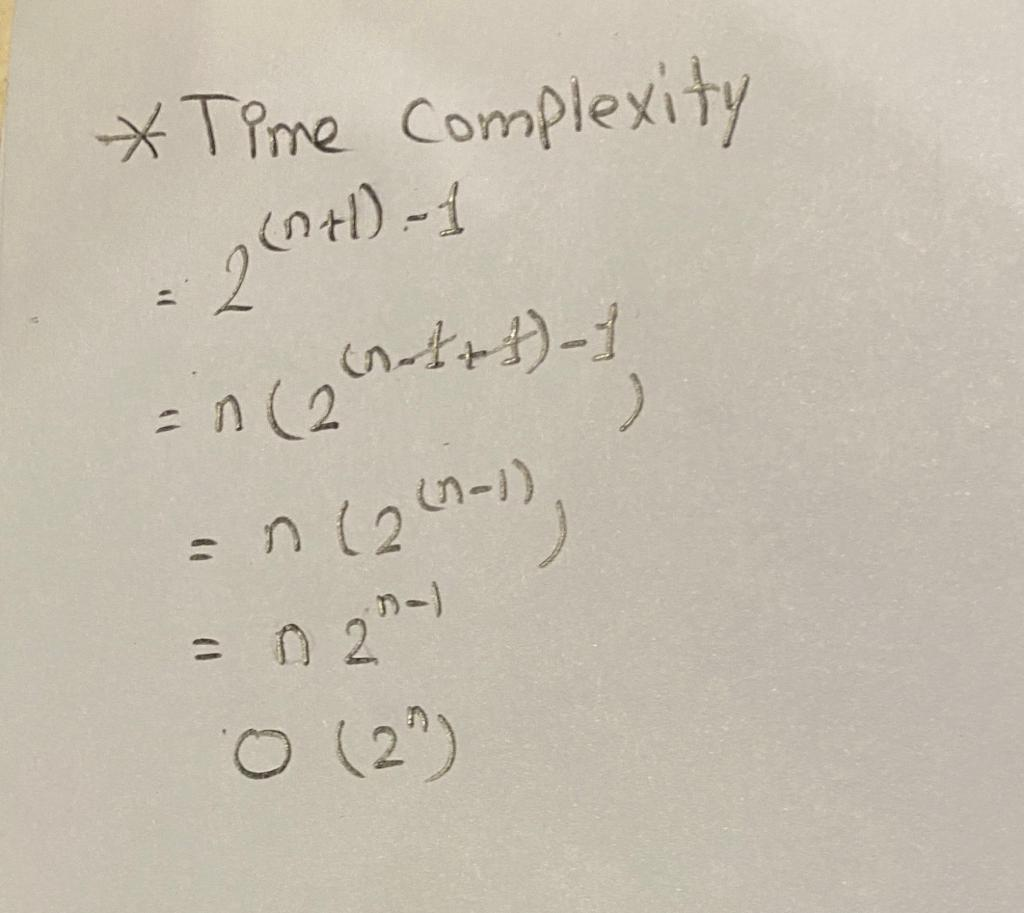 * Time Complexity
= 2^(n+1)-1
= n(2^(n-1+1)-1)
= n(2^(n-1))
= n 2^n-1
O(2^n)